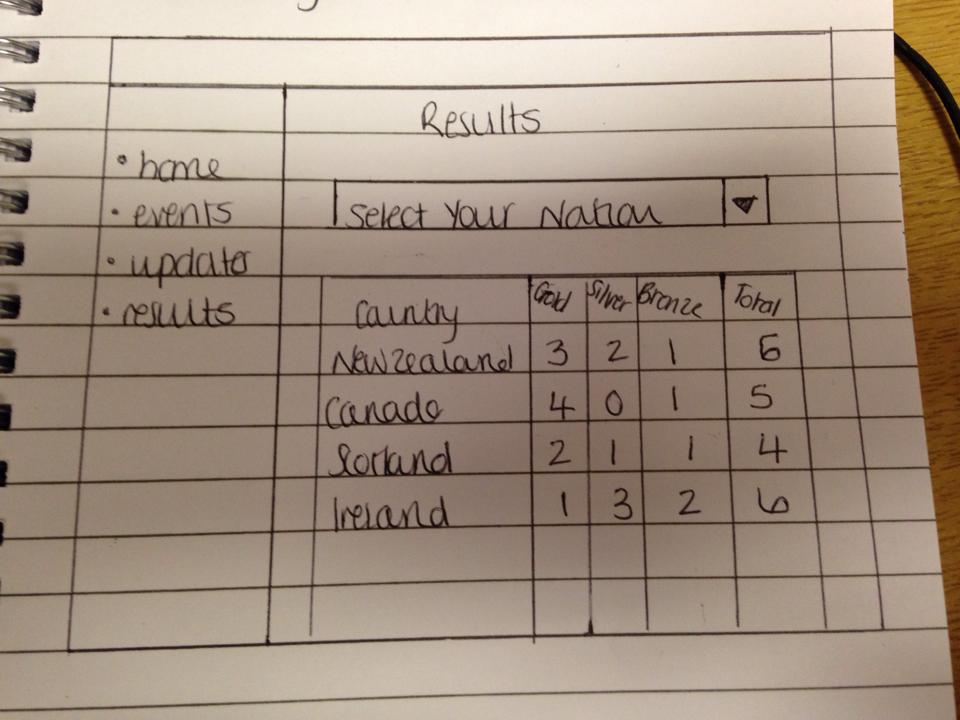 Results
• home
• events
• updates
• results
Select Your Nation
Country Gold Silver Bronze Total
New zealand 3 2 1 6
Canada 4 0 1 5
Scotland 2 1 1 4
Ireland 1 3 2 6